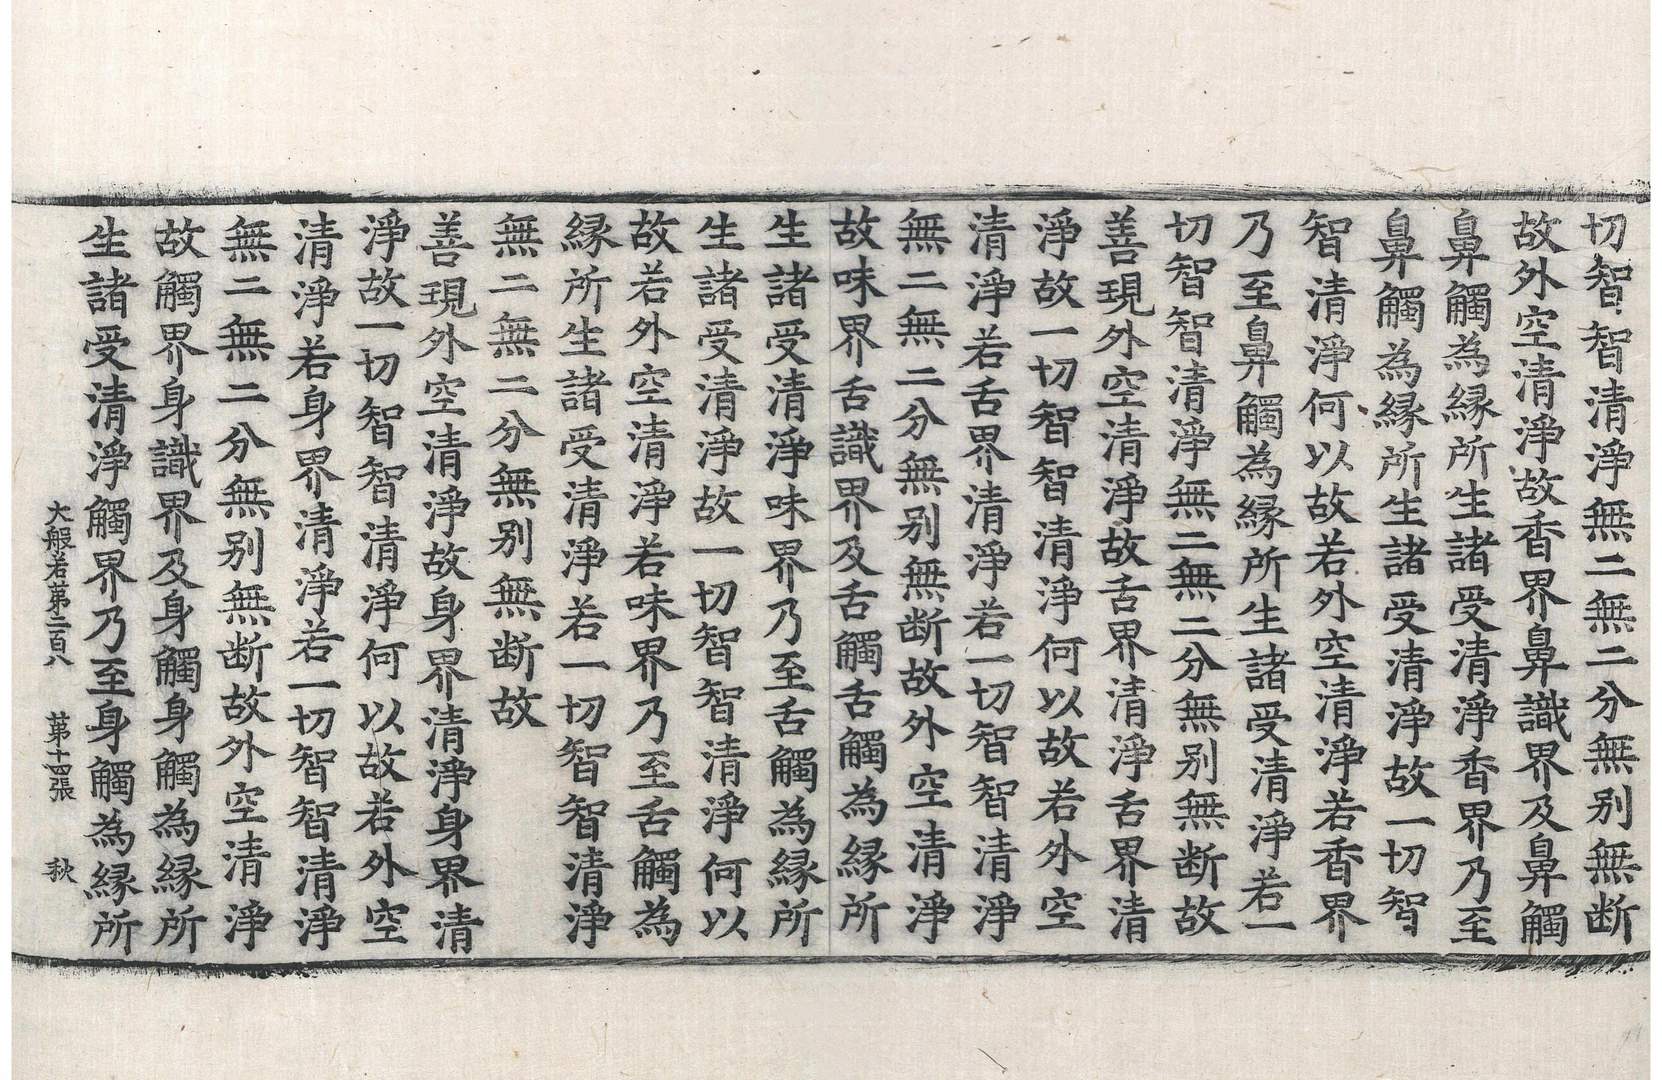 切智智清淨無二無二分無別無断
故外空清淨故香界鼻識界及鼻觸
鼻觸為縁所生諸受清淨香界乃至
鼻觸為縁所生諸受清淨故一切智
智清淨何以故若外空清淨若香界
乃至鼻觸為縁所生諸受清淨若一
切智智清淨無二無二分無別無断故
善現外空清淨故舌界清淨舌界清
淨故一切智智清淨何以故若外空
清淨若舌界清淨若一切智智清淨
無二無二分無別無断故外空清淨
故味界舌識界及舌觸舌觸為縁所
生諸受清淨味界乃至舌觸為縁所
生諸受清淨故一切智智清淨何以
故若外空清淨若味界乃至舌觸為
縁所生諸受清淨若一切智智清淨
無二無二分無別無断故
善現外空清淨故身界清淨身界清
淨故一切智智清淨何以故若外空
清淨若身界清淨若一切智智清淨
無二無二分無別無断故外空清淨
故觸界身識界及身觸身觸為縁所
生諸受清淨觸界乃至身觸為縁所
大般若第二百八 第十四張 秋